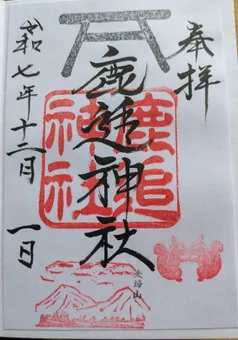 奉拝
鹿追神社
鹿追
神社
令和七年十二月一日